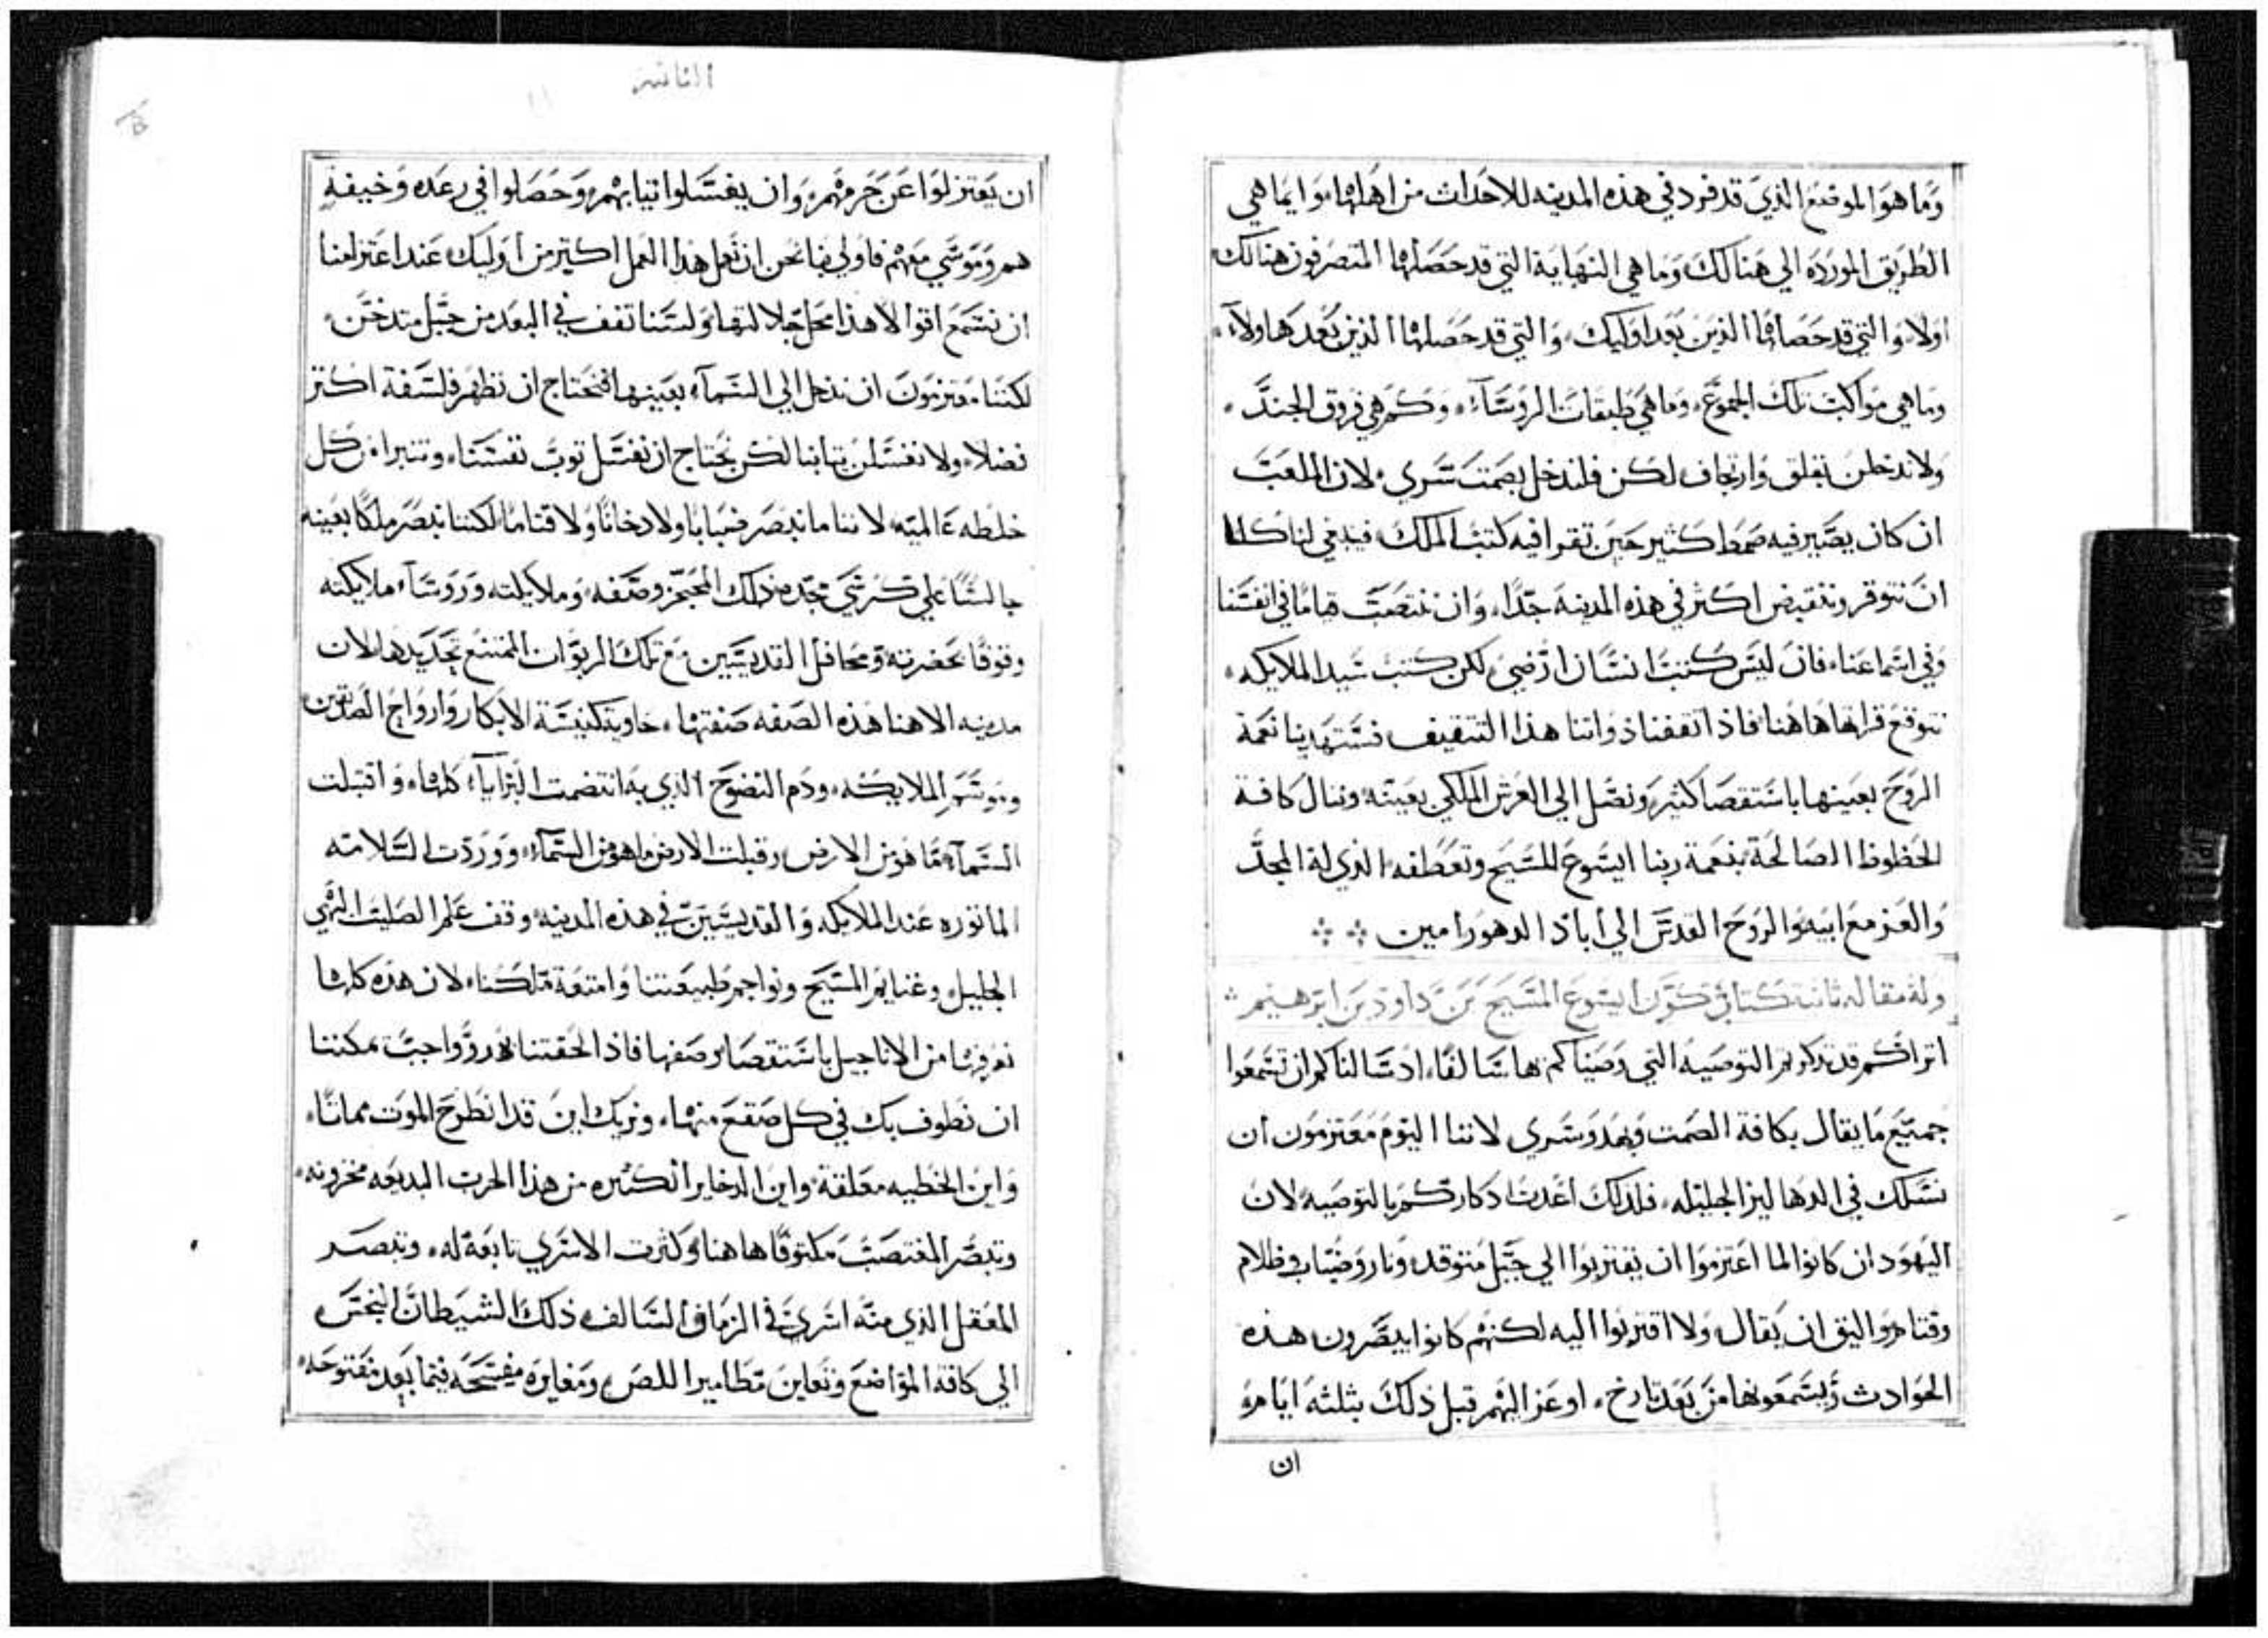 وما هو الموقع الذي قد فرد في هذه المدينه للاحداث من اهلها، وايما هي
الطريق المورده الي هنالك وما هي النهاية التي قد حصلها المتصرفون هنالك
اولا، والتي قد حصلها الذين بعد اوليك، والتي قد حصلها الذين بعد هاولاء،
وما هي مواكب تلك الجموع، وما هي طبقات الروساء، وكم هي فروق الجند،
ولا ندخلن بقلق وارتجاف لكن فلندخل بصمت سري، لان الملعب
ان كان يصير فيه صمط كثير حين تقرا فيه كتب الملك، فينبغي لنا كلنا
ان نتوقر وننقبض اكثر في هذه المدينه جدًا، وان ننتصب قياما في انفسنا
وفي استماعنا، فان ليس كتب انسان ارضي لكن كتب سيد الملايكه،
نتوقع قراتها هاهنا، فاذا ثقفنا ذواتنا هذا التثقيف فستهدينا نعمة
الروح بعينها باستقصا كثير، ونصل الي العرش الملكي بعينه وننال كافة
الحظوظ الصالحة بنعمة ربنا ايسوع المسيح وتعطفه الذي له المجد
والعز مع ابيه والروح القدس الي اباد الدهور امين
وله مقاله ثانيه كتاب تكون ايسوع المسيح بن داود بن ابرهيم
اتراكم قد تذكرتم التوصيه التي وصيناكم بها سالفًا، اذ سالناكم ان تسمعوا
جميع ما يقال بكافة الصمت وبهدو سري لاننا اليوم معتزمون ان
نسلك في الدهاليز الجليله، فلذلك اعدت اذكاركم بالتوصيه لان
اليهود ان كانوا لما اعتزموا ان يقتربوا الي جبل متوقد ونار وضباب وظلام
وقتام واليق ان يقال ولا اقتربوا اليه لكنهم كانوا يبصرون هذه
الحوادث ويسمعونها من بعد تارخ، اوعز اليهم قبل ذلك بثلثه ايام
ان
الثانيه
ان يعتزلوا عن حرمهم، وان يغسلوا ثيابهم، وحصلوا في رعده وخيفه
هم وموسي معهم فاولي بنا نحن ان نعمل هذا العمل اكثر من اوليك عند اعتزامنا
ان نسمع اقوالا هذا محل جلالتها، ولسنا نقف في البعد من جبل متدخن،
لكننا معتزمون ان ندخل الي السماء بعينها فنحتاج ان نظهر فلسفة اكثر
فضلا، ولا نغسلن ثيابنا لكن نحتاج ان نغسل ثوب نفسنا، ونتبرا من كل
خلطه عالميه، لاننا ما نبصر ضبابا ولا دخانًا ولا قتاما لكننا نبصر ملكًا بعينه
جالسًا علي كرسي مجده ذلك المعجز وصفه، وملايكته وروساء ملايكته
وقوفًا بحضرته ومحافل القديسين مع تلك الربوات الممتنع تحديدها لان
مدينه الاهنا هذه الصفه صفتها، حاوية كنيسة الابكار وارواح الصديقين
وموسم الملايكه، ودم النضوح الذي به انتضمت البرايا كلها، واقتبلت
السماء ما هو من الارض، وقبلت الارض ما هو من السماء، ووردت السلامه
الماثوره عند الملايكه والقديسين في هذه المدينه وقف علم الصليب البهي
الجليل، وغنايم المسيح وبواجم طبيعتنا وامتعة ملكنا، لان هذه كلها
نعرفها من الاناجيل باستقصا وصفها، فاذا الحقتنا بهدو واجب تمكننا
ان نطوف بك في كل صقع منها، ونريك اين قد انطرح الموت مماتا،
واين الخطيه معلقة، واين الذخاير الكثيره من هذا الحرب البديعه مخزونه،
وتبصر المغتصب مكتوفًا هاهنا وكثرت الاسري تابعة له، وتبصر
المعقل الذي منه اسري في الزمان السالف ذلك الشيطان النجس
الي كافة المواضع وتعاين مطامير اللص، ومغايره مفسحه فيما بعد مفتوحه،